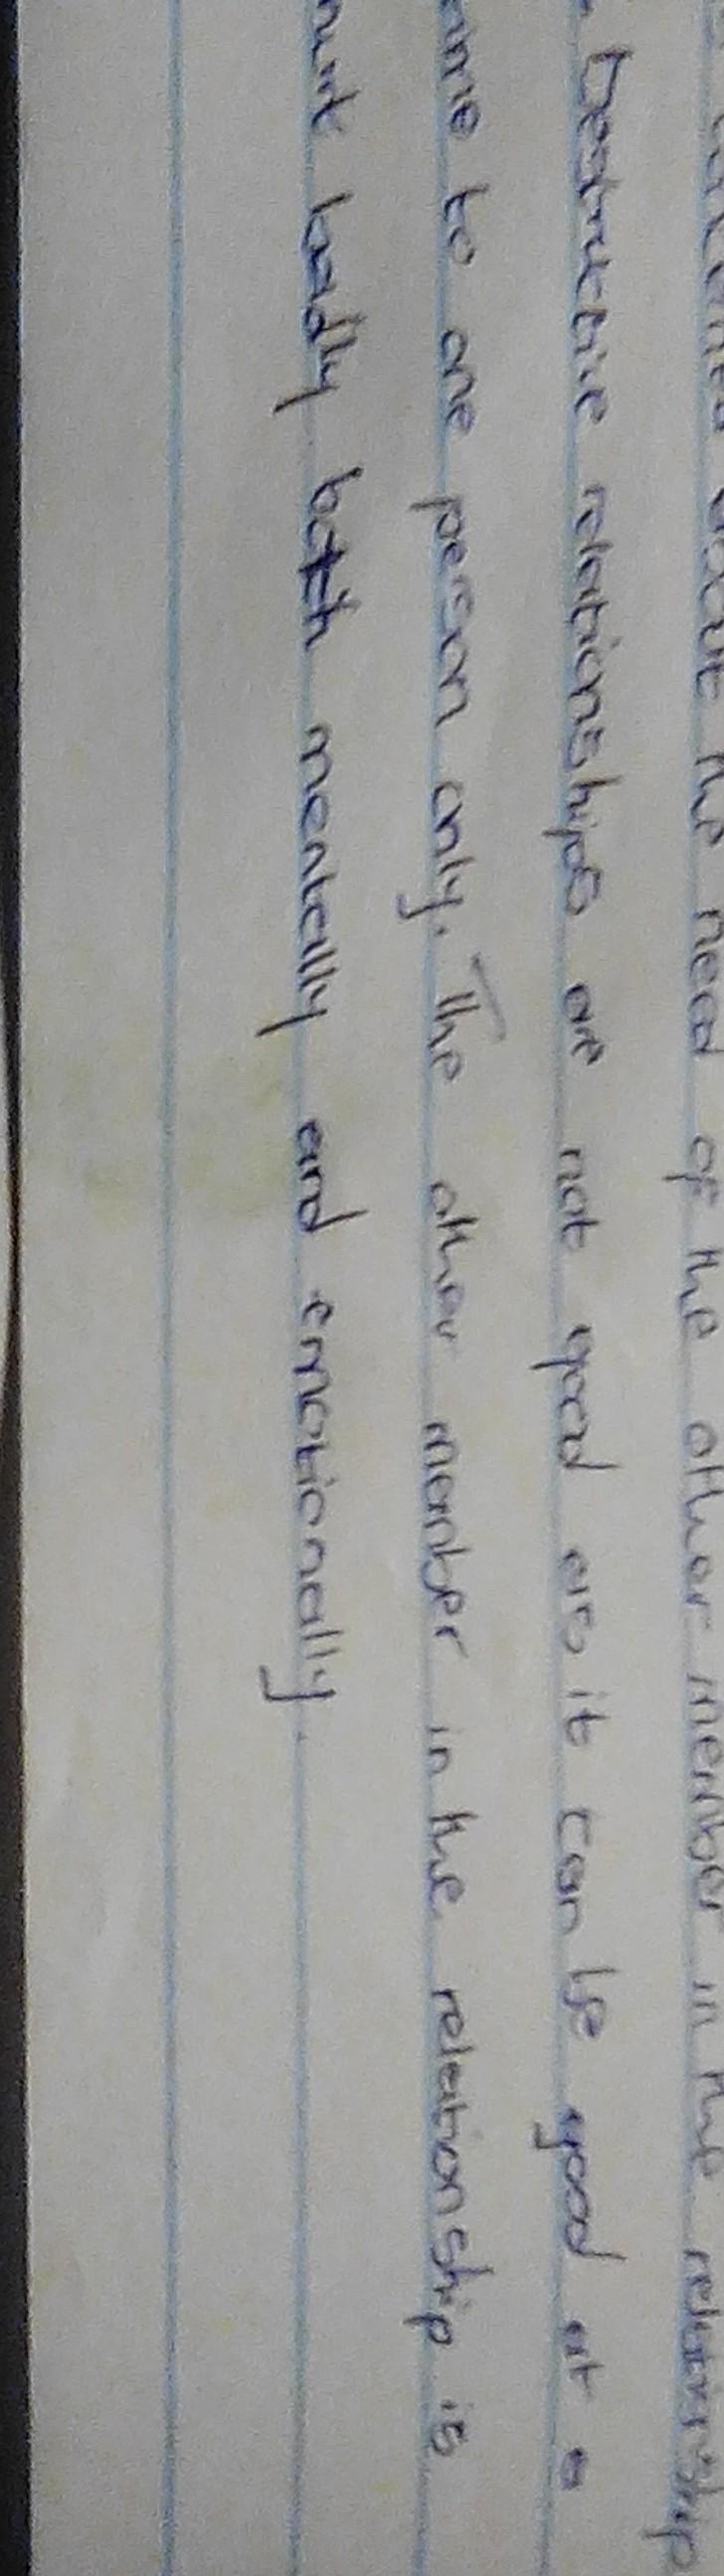 about the need of the other member in the relationship
Destructive relationships are not good as it can be good at a
time to one person only. The other member in the relationship is
hurt badly both mentally and emotionally.